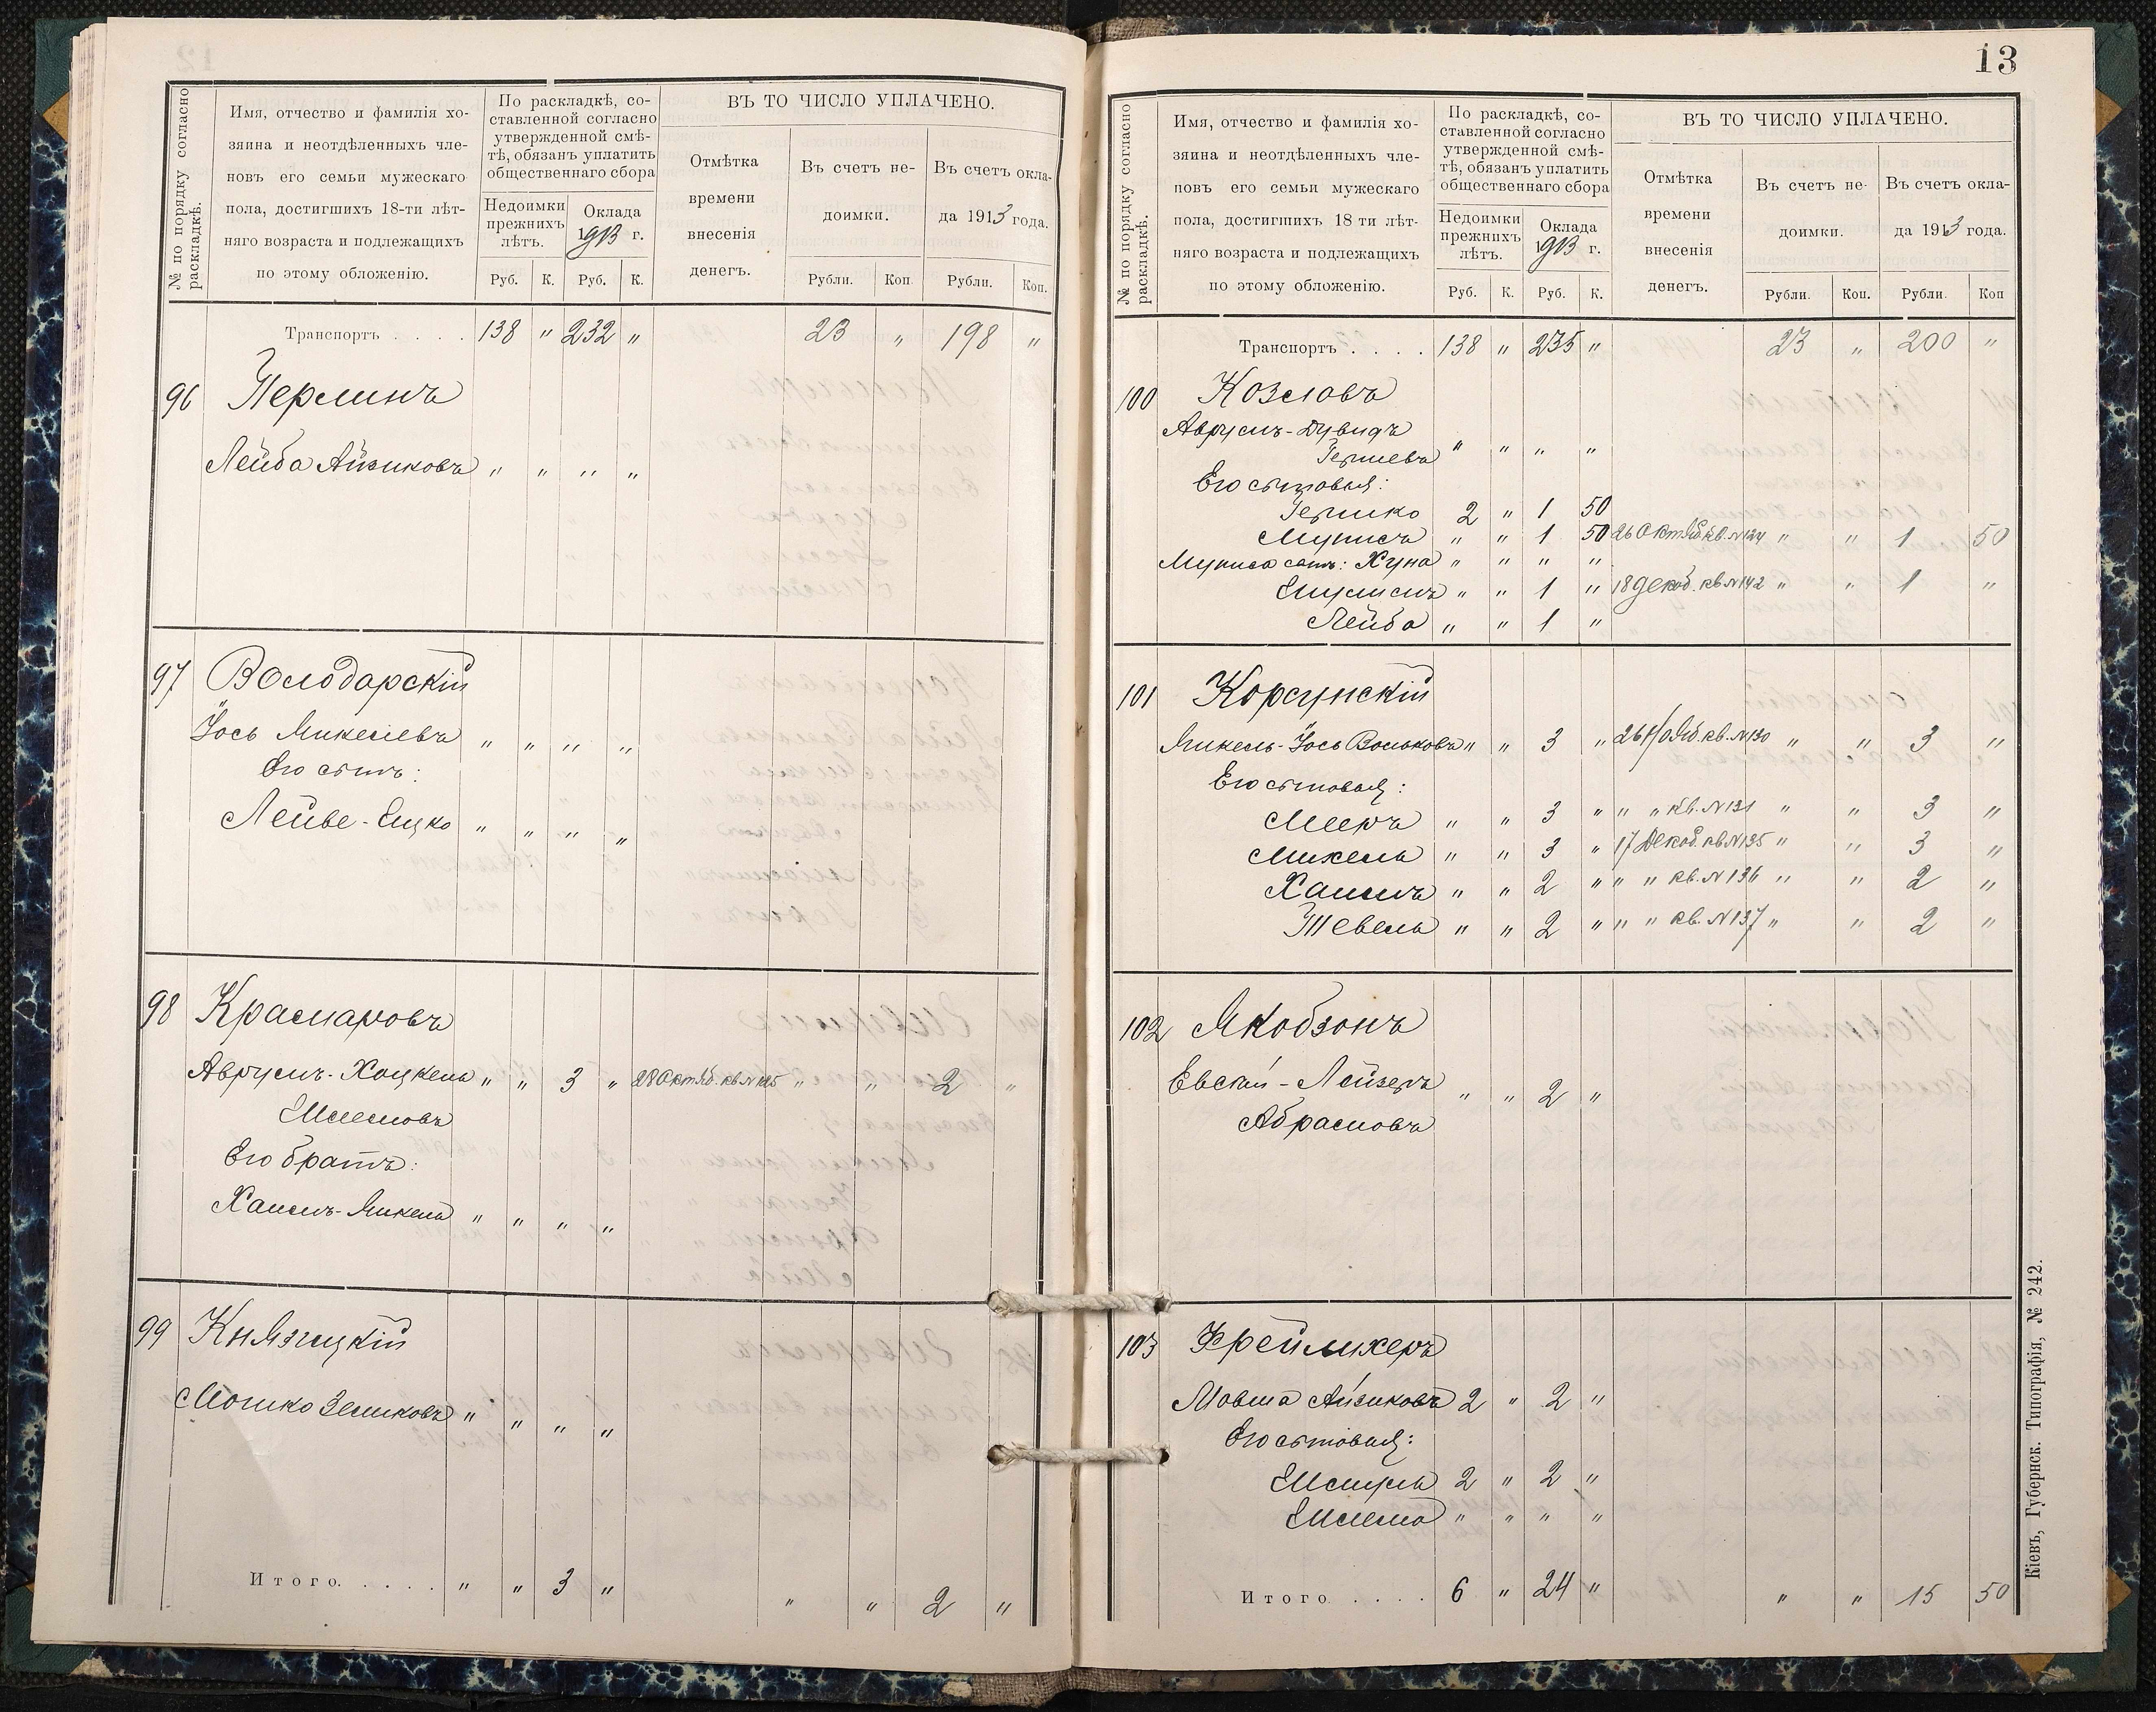 № по порядку согласно раскладкѣ.
Имя, отчество и фамилія хо-
зяина и неотдѣленныхъ чле-
новъ его семьи мужескаго
пола, достигшихъ 18-ти лѣт-
няго возраста и подлежащихъ
по этому обложенію.
По раскладкѣ, со-
ставленной согласно
утвержденной смѣ-
тѣ, обязанъ уплатить
общественнаго сбора
Недоимки
прежнихъ
лѣтъ.
Оклада
1913 г.
Руб. К. Руб. К.
ВЪ ТО ЧИСЛО УПЛАЧЕНО.
Отмѣтка
времени
внесенія
денегъ.
Въ счетъ не-
доимки.
Рубли. Коп.
Въ счетъ окла-
да 1913 года.
Рубли. Коп.
Транспортъ . . . . 138 " 232 " 23 " 198 "
96 Перлинъ
Лейба Айзиковъ " " " "
97 Володарскій
Іось Микелевъ " " " "
Его сынъ:
Лейве-Ицко " " " "
98 Красиаровъ
Аврумъ-Хацкель " " 3 " 28 Октяб. кв. N 125 " " 2 "
Шлемовъ
Его братъ:
Хаимъ-Микель " " " "
99 Князицкій
Мошко Зеликовъ " " " "
Итого. . . . . " " 3 " " " 2 "
13
№ по порядку согласно раскладкѣ.
Имя, отчество и фамилія хо-
зяина и неотдѣленныхъ чле-
новъ его семьи мужескаго
пола, достигшихъ 18 ти лѣт-
няго возраста и подлежащихъ
по этому обложенію.
По раскладкѣ, со-
ставленной согласно
утвержденной смѣ-
тѣ, обязанъ уплатить
общественнаго сбора
Недоимки
прежнихъ
лѣтъ.
Оклада
1913 г.
Руб. К. Руб. К.
ВЪ ТО ЧИСЛО УПЛАЧЕНО.
Отмѣтка
времени
внесенія
денегъ.
Въ счетъ не-
доимки.
Рубли. Коп.
Въ счетъ окла-
да 1913 года.
Рубли. Коп
Транспортъ . . . . 138 " 235 " 23 " 200 "
100 Козловъ
Аврумъ-Дувидъ
Гершевъ " " " "
Его сыновья:
Гершко 2 " 1 50
Мунисъ " " 1 50 26 Октяб. кв. N 124 " " 1 50
Муниса сынъ: Хуна " " " "
Шулимъ " " 1 " 18 Декаб. кв N 142 " " 1 "
Лейба " " 1 "
101 Корсунскій
Микель-Іось Вольковъ " " 3 " 26 Нояб. кв. N 130 " " 3 "
Его сыновья:
Мееръ " " 3 " " " кв. N 131 " " 3 "
Михель " " 3 " 17 Декаб. кв N 135 " " 3 "
Хаимъ " " 2 " " " кв. N 136 " " 2 "
Тевель " " 2 " " " кв. N 137 " " 2 "
102 Якобзонъ
Евсей-Лейзеръ " " 2 "
Абрамовъ
103 Фреймхеръ
Мовша Айзиковъ 2 " 2 "
Его сыновья:
Шмуль 2 " 2 "
Шлема " " " "
Итого . . . . 6 " 24 " " " 15 50
Кіевъ, Губернск. Типографія, № 242.